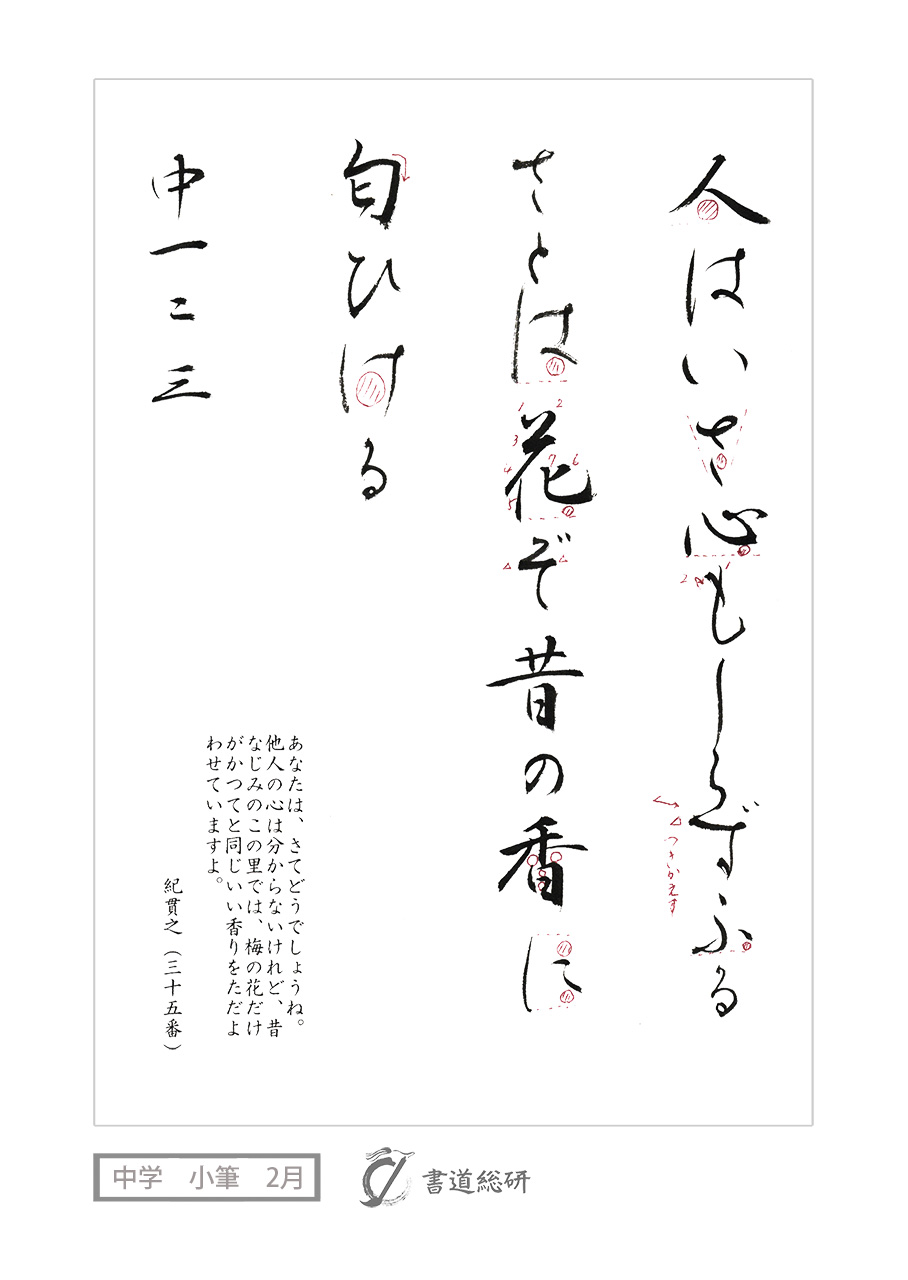 人はいさ心もしらずふる
さとは花ぞ昔の香に
匂ひける
中一二三
1 2
3
7 6
4
5
2 1
つきかえす
あなたは、さてどうでしょうね。
他人の心は分からないけれど、昔
なじみのこの里では、梅の花だけ
がかつてと同じいい香りをただよ
わせていますよ。
紀貫之（三十五番）
中学 小筆 2月
書道総研